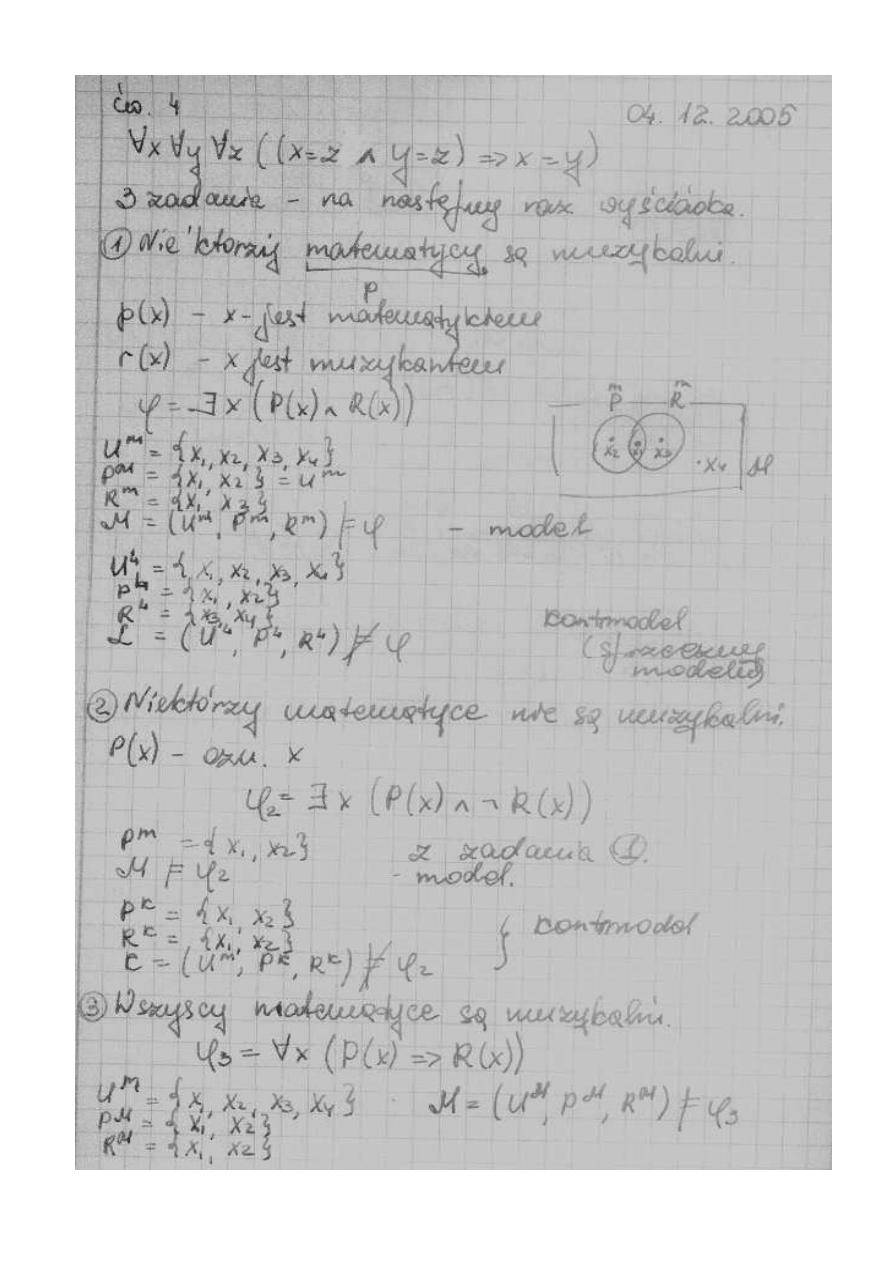 ćw. 4
04. 12. 2005
∀x ∀y ∀z ((x=z ∧ y=z) => x=y)
3 zadania – na następny raz wyściádka.
① Nie'ktorzij matematycy są muzykalni.
P
p(x) – x-jest matematykiem
r(x) – x jest muzykantem
φ = ∃x (P(x) ∧ R(x))
P^m R^m
x2 x1 x3
.x4 M
U^m = {x1, x2, x3, x4}
P^m = {x1, x2} = U^m
R^m = {x1, x3}
M = (U^m, P^m, R^m) ⊨ φ – model
U^4 = {x1, x2, x3, x4}
P^4 = {x1, x2}
R^4 = {x3, x4}
L = (U^4, P^4, R^4) ⊭ φ
kontrmodel
② Niektórzy matematyce nie są muzykalni.
P(x) – ozn. x
φ2 = ∃x (P(x) ∧ ¬ R(x))
P^m = {x1, x2} z zadania ①.
M ⊨ φ2 - model.
P^K = {x1, x2}
R^K = {x1, x2} } kontrmodel
K = (U^m, P^K, R^K) ⊭ φ2
③ Wszyscy matematyce są muzykalni.
φ3 = ∀x (P(x) => R(x))
U^M = {x1, x2, x3, x4} . M = (U^M, P^M, R^M) ⊨ φ3
P^M = {x1, x2}
R^M = {x1, x2}